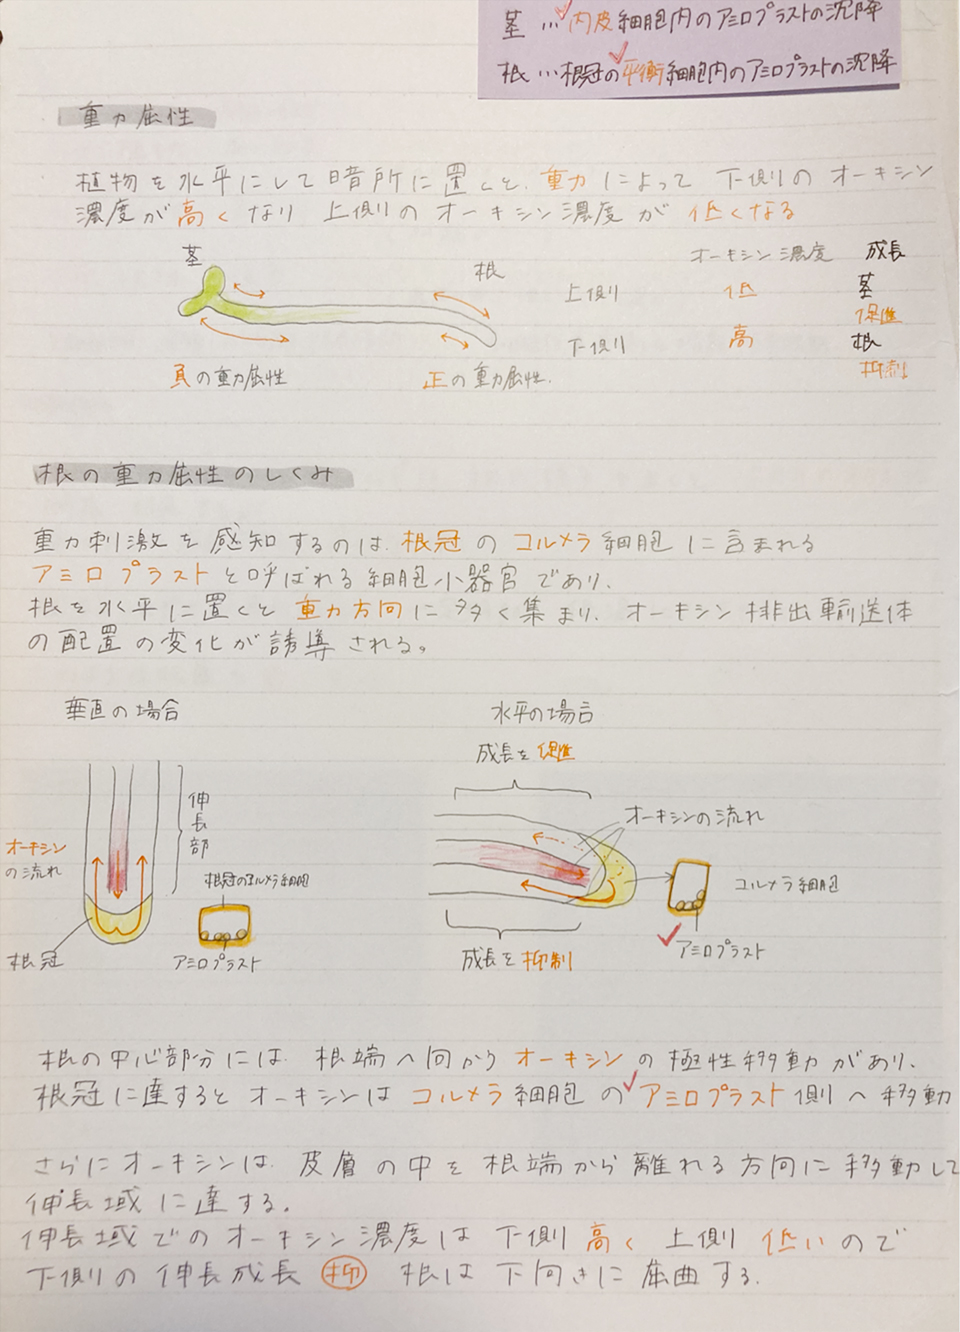 茎…内皮細胞内のアミロプラストの沈降
根…根冠の平衡細胞内のアミロプラストの沈降
重力屈性
植物を水平にして暗所に置くと、重力によって下側のオーキシン
濃度が高くなり 上側のオーキシン濃度が低くなる
茎
根
オーキシン濃度 成長
上側 低 茎
促進
下側 高 根
抑制
負の重力屈性
正の重力屈性.
根の重力屈性のしくみ
重力刺激を感知するのは、根冠のコルメラ細胞に含まれる
アミロプラストと呼ばれる細胞小器官であり、
根を水平に置くと重力方向に多く集まり、オーキシン排出輸送体
の配置の変化が誘導される。
垂直の場合
水平の場合
成長を促進
伸長部
オーキシンの流れ
オーキシン
の流れ
根冠のコルメラ細胞
コルメラ細胞
根冠
アミロプラスト
成長を抑制
アミロプラスト
根の中心部分には、根端へ向かうオーキシンの極性移動があり、
根冠に達するとオーキシンはコルメラ細胞のアミロプラスト側へ移動
さらにオーキシンは、皮層の中を根端から離れる方向に移動して
伸長域に達する。
伸長域でのオーキシン濃度は下側高く 上側低いので
下側の伸長成長抑 根は下向きに屈曲する.